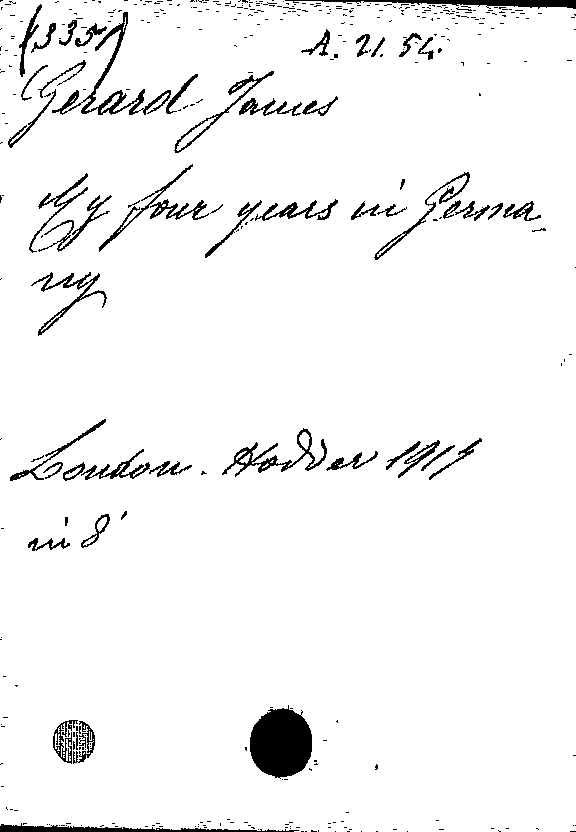 (3351)
A. 21. 54.
Gerard James
My four years in Germa-
ny
London. Hodder 1917
in 8°